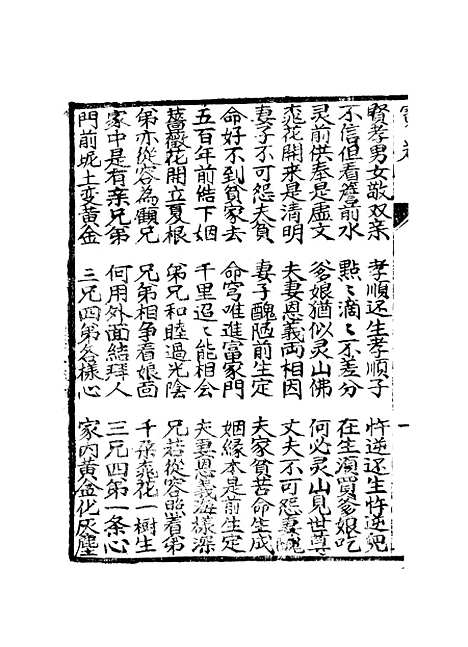 寶卷 一
賢孝男女敬双亲 孝順还生孝順子 忤逆还生忤逆兒
不信但看簷前水 點〻滴〻不差分 在生須買爹娘吃
灵前供奉是虛文 爹娘猶似灵山佛 何必灵山見世尊
桃花開来是清明 夫妻恩義両相因 丈夫不可怨妻醜
妻子不可怨夫貧 妻子醜陋前生定 夫家貧苦命生成
命好不到貧家去 命穷唯進富家門 姻緣本是前生定
五百年前結下姻 千里迢〻能相会 夫妻恩義海樣深
薔薇花開立夏根 弟兄和睦過光陰 兄若從容照着弟
弟亦從容為顧兄 兄弟相争看娘面 千朶桃花一樹生
家中是有亲兄弟 何用外面結拜人 三兄四弟一条心
門前坭土变黃金 三兄四弟各樣心 家內黃金化灰塵